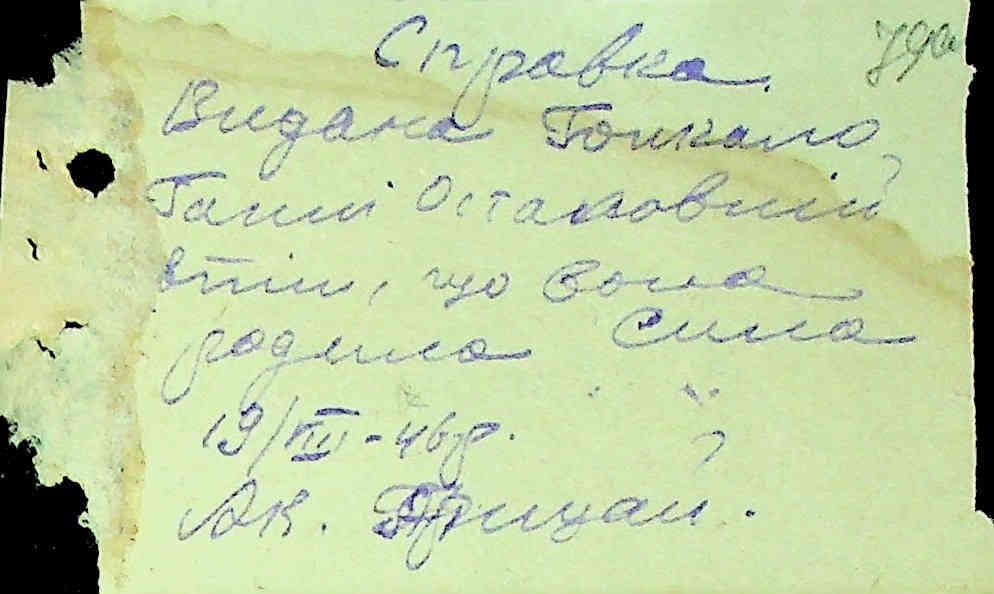 Справка
Видана Гонкало
Ганні Остаповній
втім, що вона
родила сина
19/VIII-46р.
Ак. Грицай.